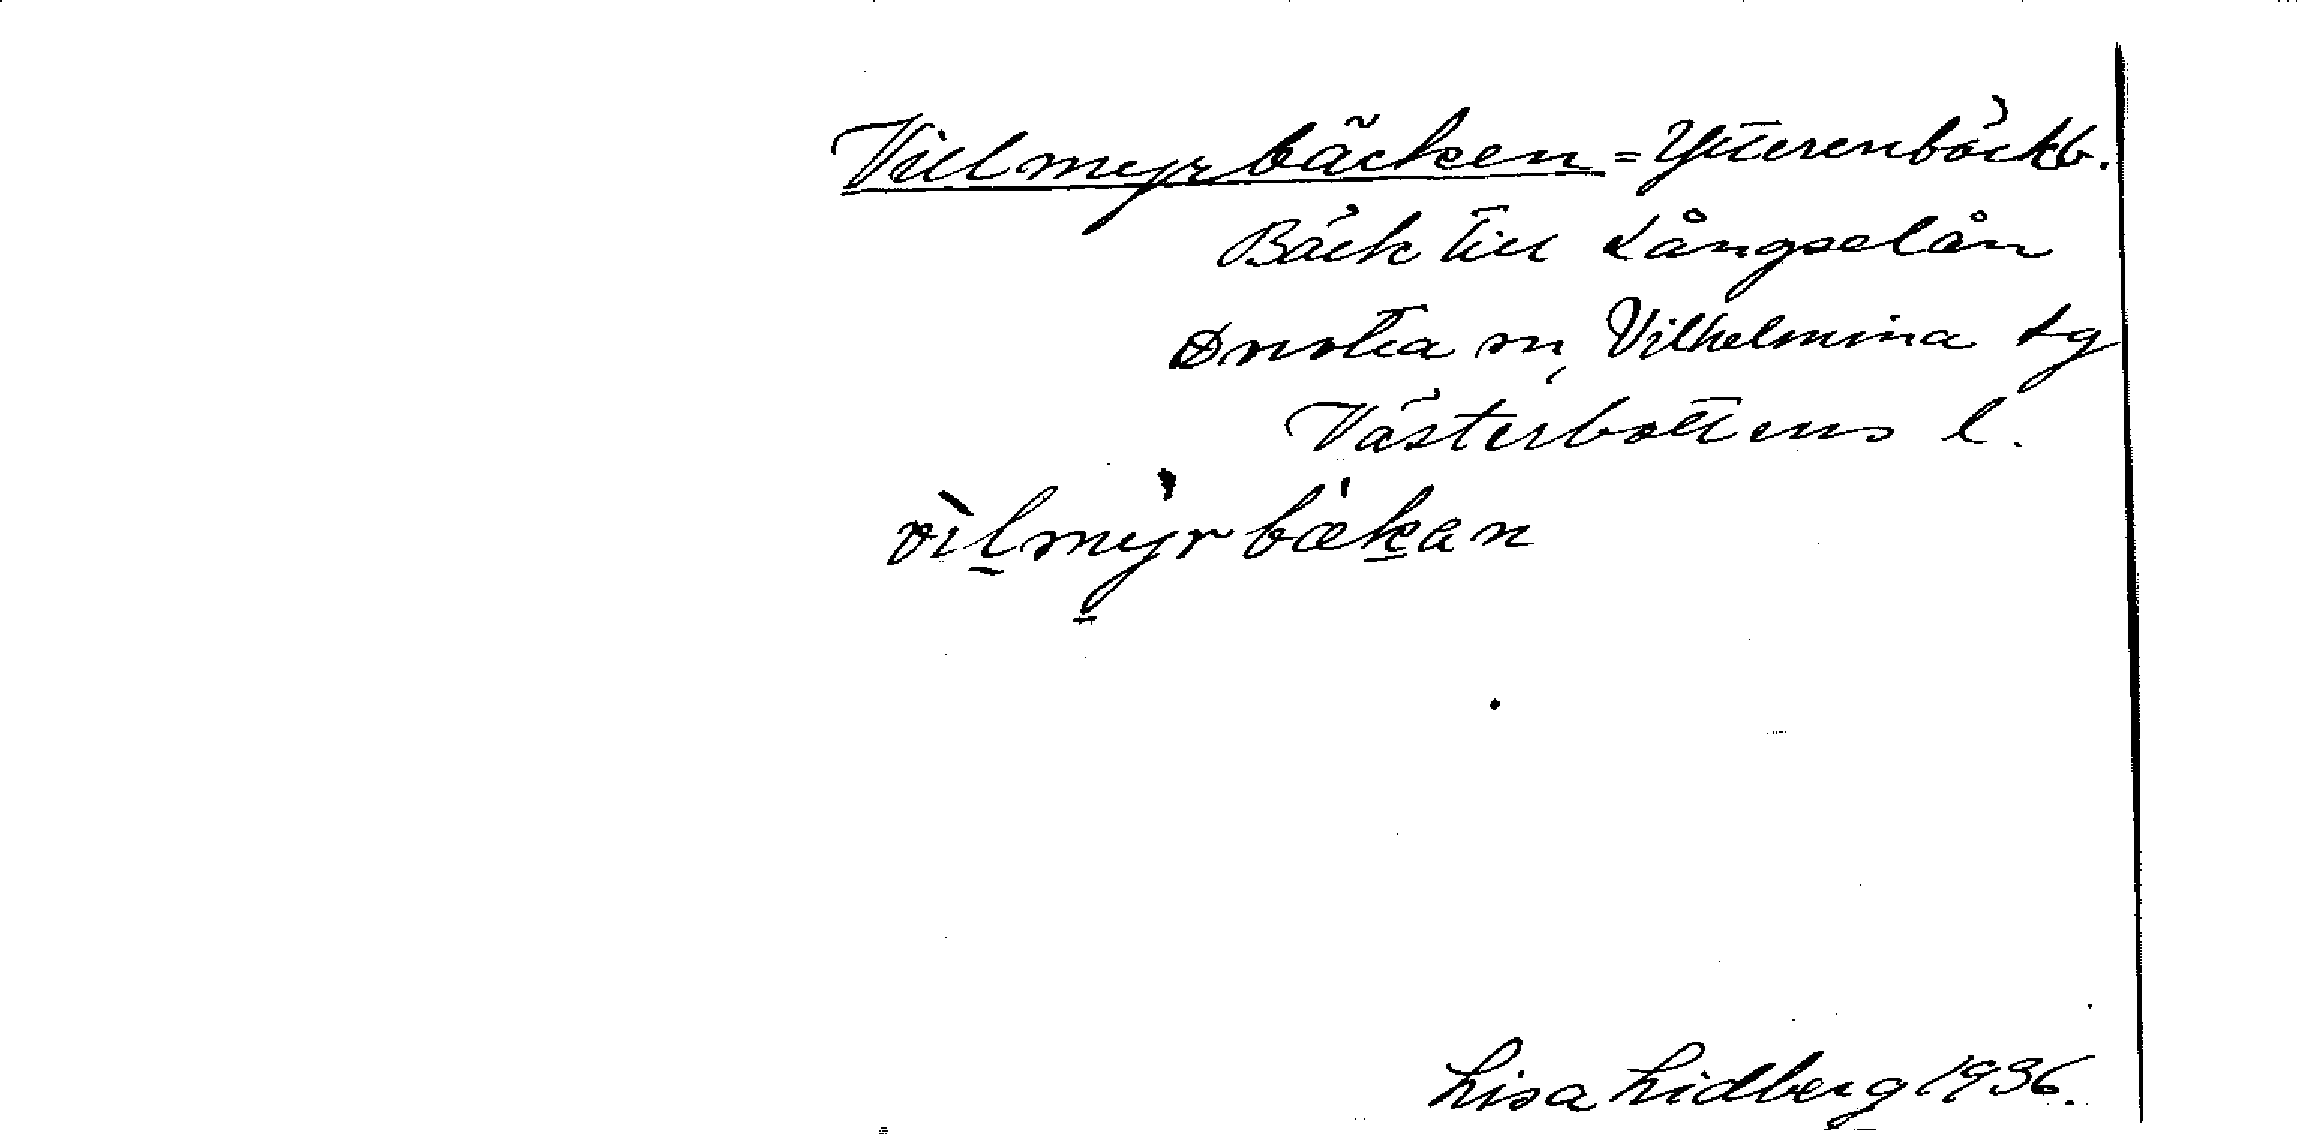 Villmyrbäcken = Ytterenbäckb.
Bäck till Långselån
Dorotea sn, Vilhelmina tg
Västerbottens l.
vìlmỳrbækan
Lisa Lidberg 1936.